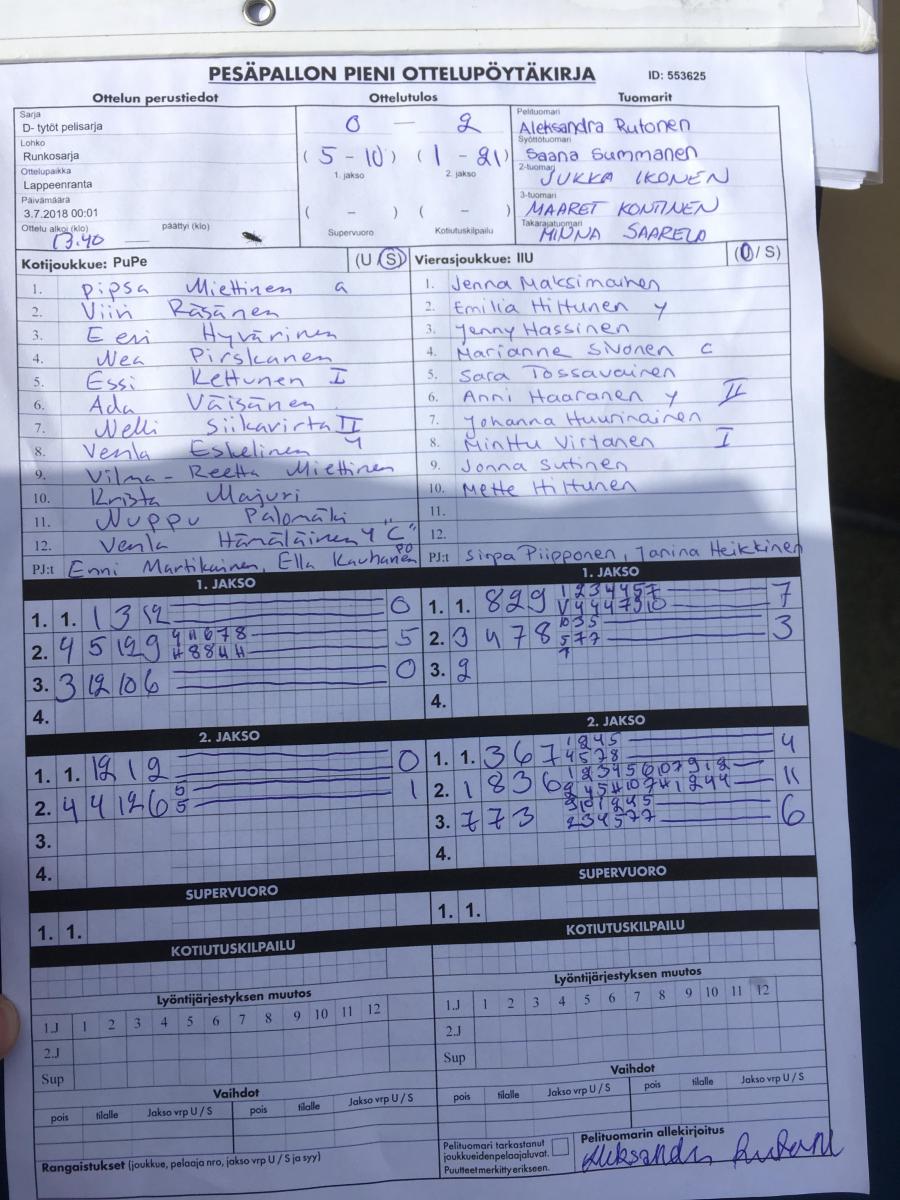 PESÄPALLON PIENI OTTELUPÖYTÄKIRJA ID: 553625
Ottelun perustiedot Ottelutulos Tuomarit
Sarja
D- tytöt pelisarja
Lohko
Runkosarja
Ottelupaikka
Lappeenranta
Päivämäärä
3.7.2018 00:01
Ottelu alkoi (klo) päättyi (klo)
13.40
0 — 2
(5 - 10) (1 - 21)
1. jakso 2. jakso
( - ) ( - )
Supervuoro Kotiutuskilpailu
Pelituomari
Aleksandra Rutonen
Syöttötuomari
Saana Summanen
2-tuomari
JUKKA IKONEN
3-tuomari
MAARET KONTINEN
Takarajatuomari
MINNA SAARELA
Kotijoukkue: PuPe (U S)
1. Pipsa Miettinen a
2. Viivi Räsänen
3. Eevi Hyvärinen
4. Nea Pirskanen
5. Essi Kettunen I
6. Ada Väisänen
7. Nelli Siikavirta II
8. Venla Eskelinen y
9. Vilma-Reetta Miettinen
10. Krista Majuri
11. Nuppu Palomäki
12. Venla Hämäläinen y "C"
PJ:t Enni Martikainen, Ella Kauhanen
Vierasjoukkue: IIU (U / S)
1. Jenna Maksimainen
2. Emilia Hiltunen y
3. Jenny Hassinen
4. Marianne Sivonen c
5. Sara Tossavainen
6. Anni Haaranen y II
7. Johanna Huurinainen
8. Minttu Virtanen I
9. Jonna Sutinen
10. Mette Hiltunen
11.
12.
PJ:t Sirpa Piipponen, Janina Heikkinen
1. JAKSO 1. JAKSO
1. 1. 1 3 12 0
2. 4 5 12 9 5
3. 3 12 10 6 0
4.
1. 1. 8 2 9 7
2. 3 4 7 8 3
3. 2
4.
2. JAKSO 2. JAKSO
1. 1. 12 1 2 0
2. 4 4 12 6 5 1
5
3.
4.
1. 1. 3 6 7 4
2. 1 8 3 6 11
3. 7 7 3 6
4.
SUPERVUORO SUPERVUORO
1. 1. 1. 1.
KOTIUTUSKILPAILU KOTIUTUSKILPAILU
Lyöntijärjestyksen muutos Lyöntijärjestyksen muutos
1.J 1 2 3 4 5 6 7 8 9 10 11 12 1.J 1 2 3 4 5 6 7 8 9 10 11 12
2.J 2.J
Sup Sup
Vaihdot Vaihdot
pois tilalle Jakso vrp U / S pois tilalle Jakso vrp U / S pois tilalle Jakso vrp U / S pois tilalle Jakso vrp U / S
Rangaistukset (joukkue, pelaaja nro, jakso vrp U / S ja syy)
Pelituomari tarkastanut
joukkueiden pelaajaluvat.
Puutteet merkitty erikseen.
Pelituomarin allekirjoitus
Aleksandra Rutonen